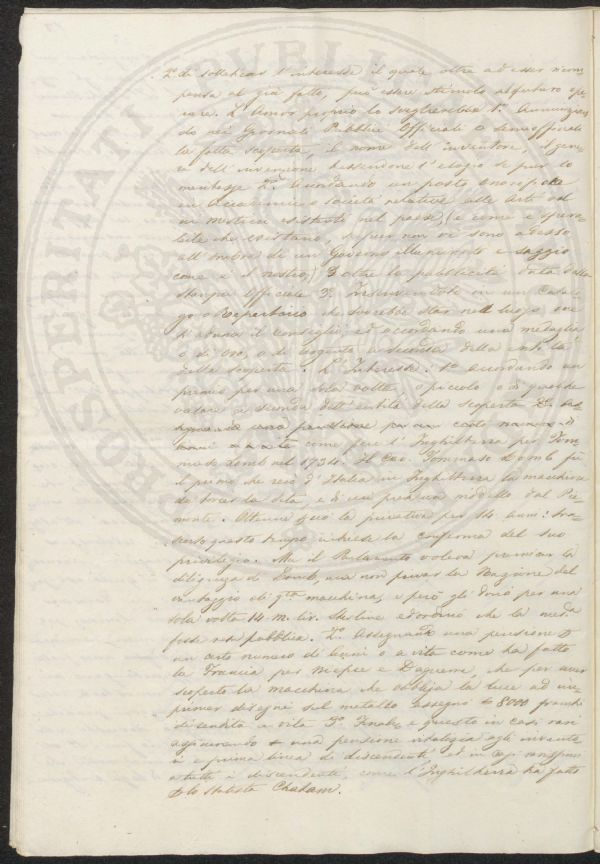 PROSPERITATI PVBLICAE
2° di solleticar l'interesse il quale oltre ad esser ricom
pensa al già fatto, può essere stimolo al futuro ope
rare. L'Amor proprio lo sveglierebbe 1° Annunzian
do nei Giornali Pubblici Officiali o semiofficiali
la fatta scoperta, il nome dell'inventore, il gene
re dell'invenzione tessendone l'elogio se pur lo
meritasse 2° Accordando un posto onorifico
in Accademie o Società relative alle Arti ed
in esistente nel paese, (e come è spera
bile che esistano, seppur non vi sono adesso
all'ombra di un Governo illuminato e saggio
come è il nostro,) oltre la pubblicità data dalla
stampa Officiale 3° in un Catalo
go o Repertorio che dovrebbe star nel luogo ove
si aduna il consiglio ed accordando una medaglia
o di oro, o di argento a seconda della entità
della scoperta. L'Interesse. 1° accordando un
premio per una sola volta o piccolo o di grande
valore a seconda dell'entità della scoperta 2° as
segnando una per un certo numero di
anni come fece l'Inghilterra per Tom
maso Lomb nel 1734. Il Cav. Tommaso Lomb fu
il primo che recò d'Italia in Inghilterra la macchina
da torcer la seta, e di cui prese un modello dal Pie
monte. Ottenne egli la privativa per 14 anni: tra
scorso questo tempo richiese la conferma del suo
privilegio. Ma il Parlamento voleva premiar la
diligenza di Lomb, ma non privar la Nazione del
vantaggio di q.ta macchina, e però gli donò per una
sola volta 14. m. lir. Sterline ed ordinò che la med.a
fosse resa pubblica. 2° Assegnando una pensione
un certo numero di anni o a vita come ha fatto
la Francia per Niepce e Daguerre, che per aver
scoperto la macchina che obbliga la luce ad im
primer disegni sul metallo assegnò 8000 franchi
di rendita a vita 3° Finalm.e e questo in casi rari
assegnando una pensione vitalizia agli invento
ri e prima linea di discendenti ed in casi rarissimi
a tutti i discendenti, come l'Inghilterra ha fatto
allo Statista Chatam.